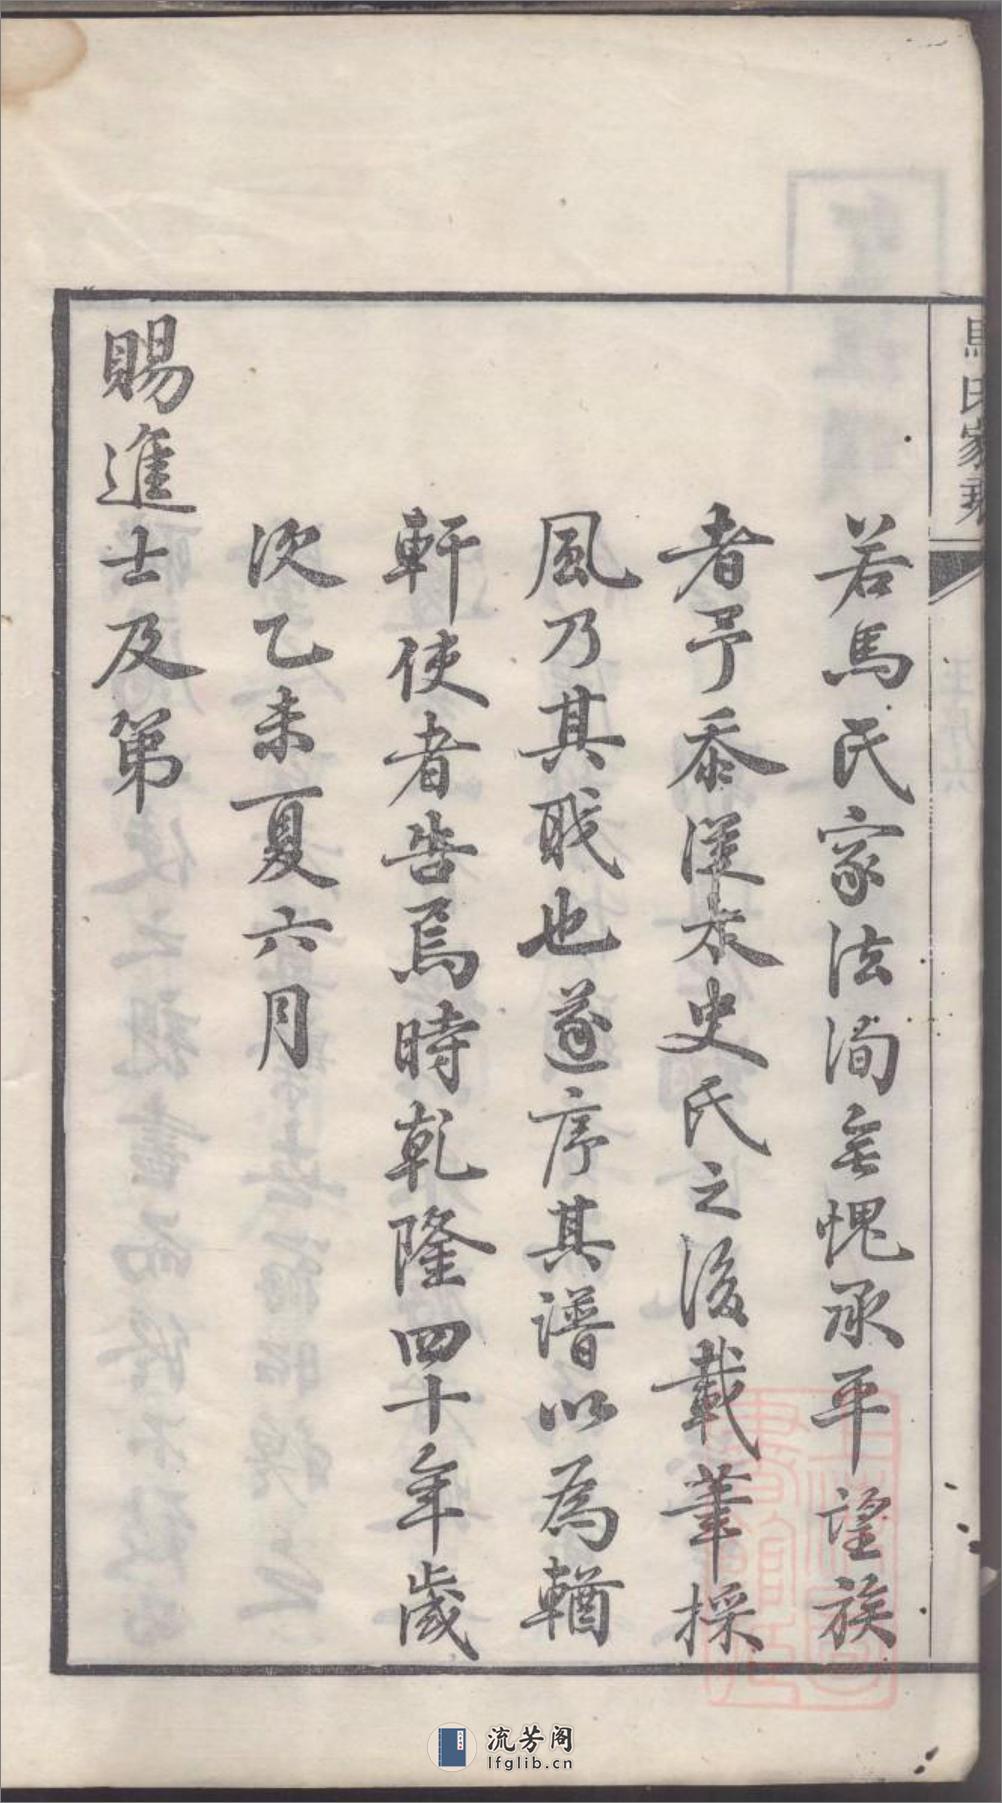 馬氏家乘
若馬氏家法洵無愧承平望族
者予忝從太史氏之後載筆採
風乃其職也遂序其譜以為輶
軒使者告焉時乾隆四十年歲
次乙未夏六月
賜進士及第
流芳阁
lfglib.cn